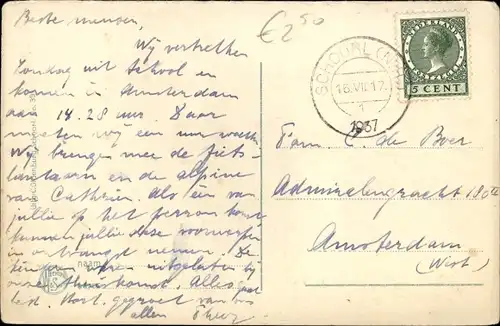 Beste mensen,
Wij vertrekken
Zondag uit School en
komen in Amsterdam
aan 14.28 uur. Daar
moeten wij een uur wachten
Wij brengen mee de fiets-
lantaarn en de alpine
van Cathrien. Als één van
jullie op het perron komt
kunnen jullie deze voorwerpen
in ontvangst nemen. De
kinderen waren uitgelaten bij
onze thuiskomst. Alles
best. Hart. gegroet van ons
allen
€ 2 50
SCHOORL (N.H.)
16.VII.17
1
1937
NEDERLAND
5 CENT
Fam. C. de Boer
Admiralengracht 180
Amsterdam
(West)